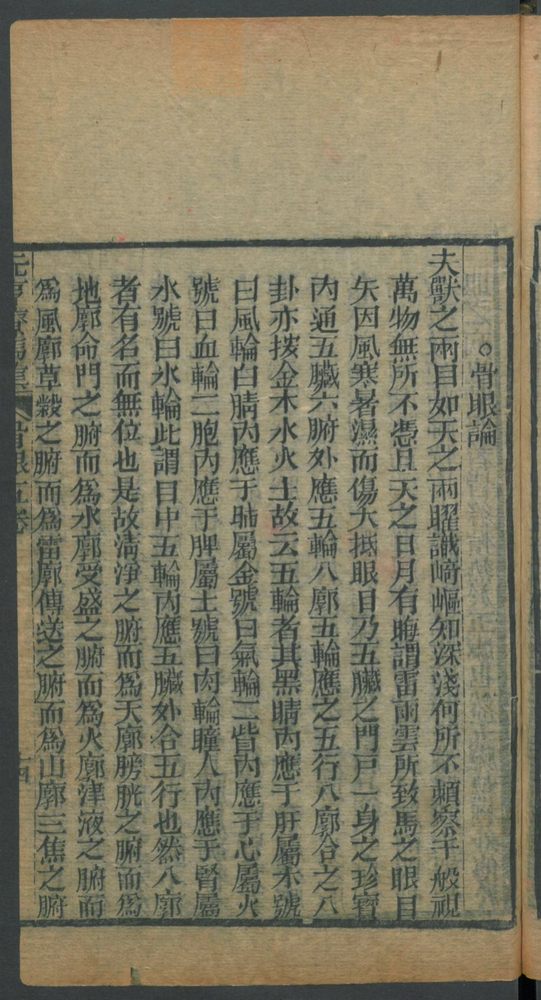 ○骨眼論
夫獸之兩目如天之兩曜識崎嶇知深淺何所不賴察千般視
萬物無所不憑且天之日月有晦謂雷雨雲所致馬之眼目
矢因風寒暑濕而傷大抵眼目乃五臟之門戶一身之珍寶
內通五臟六腑外應五輪八廓五輪應之五行八廓合之八
卦亦按金木水火土故云五輪者其黑睛內應于肝屬木號
曰風輪白睛內應于肺屬金號曰氣輪二眥內應于心屬火
號曰血輪二胞內應于脾屬土號曰肉輪瞳人內應于腎屬
水號曰水輪此謂目中五輪內應五臟外合五行也然八廓
者有名而無位也是故清淨之腑而爲天廓膀胱之腑而爲
地廓命門之腑而爲水廓受盛之腑而爲火廓津液之腑而
爲風廓草穀之腑而爲雷廓傳送之腑而爲山廓三焦之腑
元亨療馬集
骨眼五卷